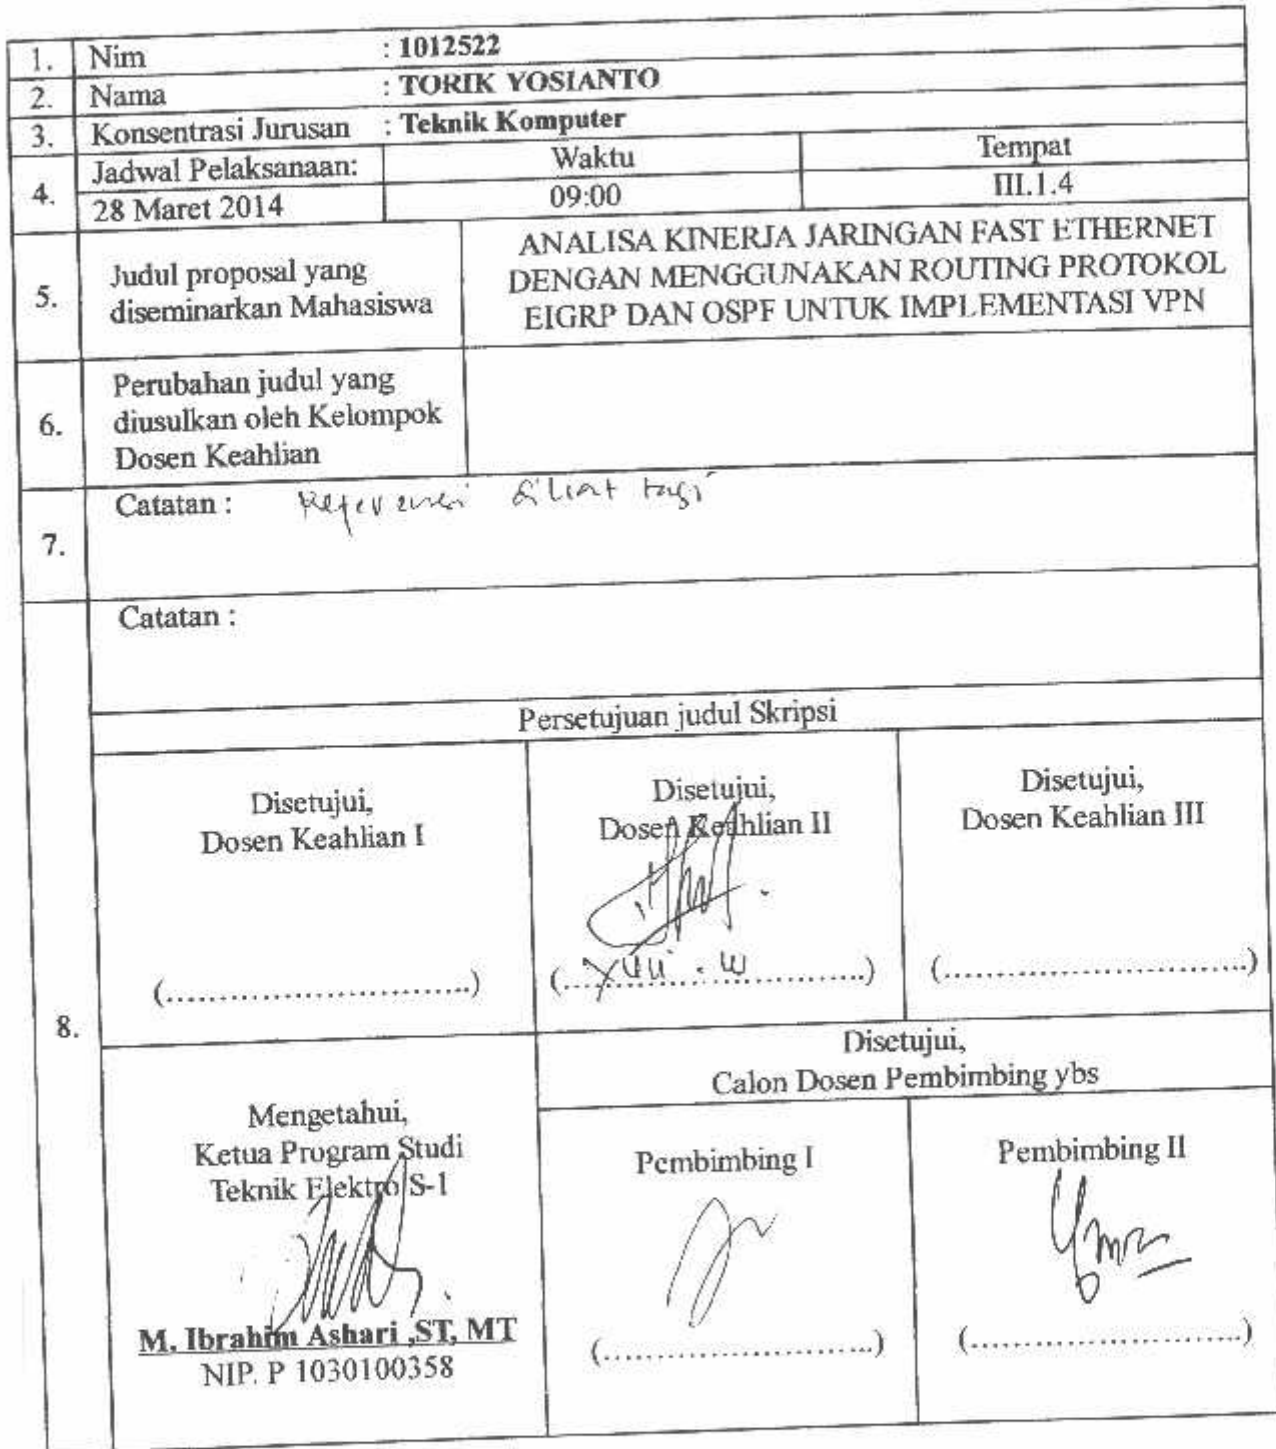 1. Nim : 1012522
2. Nama : TORIK YOSIANTO
3. Konsentrasi Jurusan : Teknik Komputer
4. Jadwal Pelaksanaan: Waktu Tempat
28 Maret 2014 09:00 III.1.4
5. Judul proposal yang diseminarkan Mahasiswa
ANALISA KINERJA JARINGAN FAST ETHERNET
DENGAN MENGGUNAKAN ROUTING PROTOKOL
EIGRP DAN OSPF UNTUK IMPLEMENTASI VPN
6. Perubahan judul yang
diusulkan oleh Kelompok
Dosen Keahlian
7. Catatan : Referensi dilihat lagi
8. Catatan :
Persetujuan judul Skripsi
Disetujui,
Dosen Keahlian I
(...........................)
Disetujui,
Dosen Keahlian II
(...........................)
Disetujui,
Dosen Keahlian III
(...........................)
Mengetahui,
Ketua Program Studi
Teknik Elektro S-1
M. Ibrahim Ashari ,ST, MT
NIP. P 1030100358
Disetujui,
Calon Dosen Pembimbing ybs
Pembimbing I
(...........................)
Pembimbing II
(...........................)